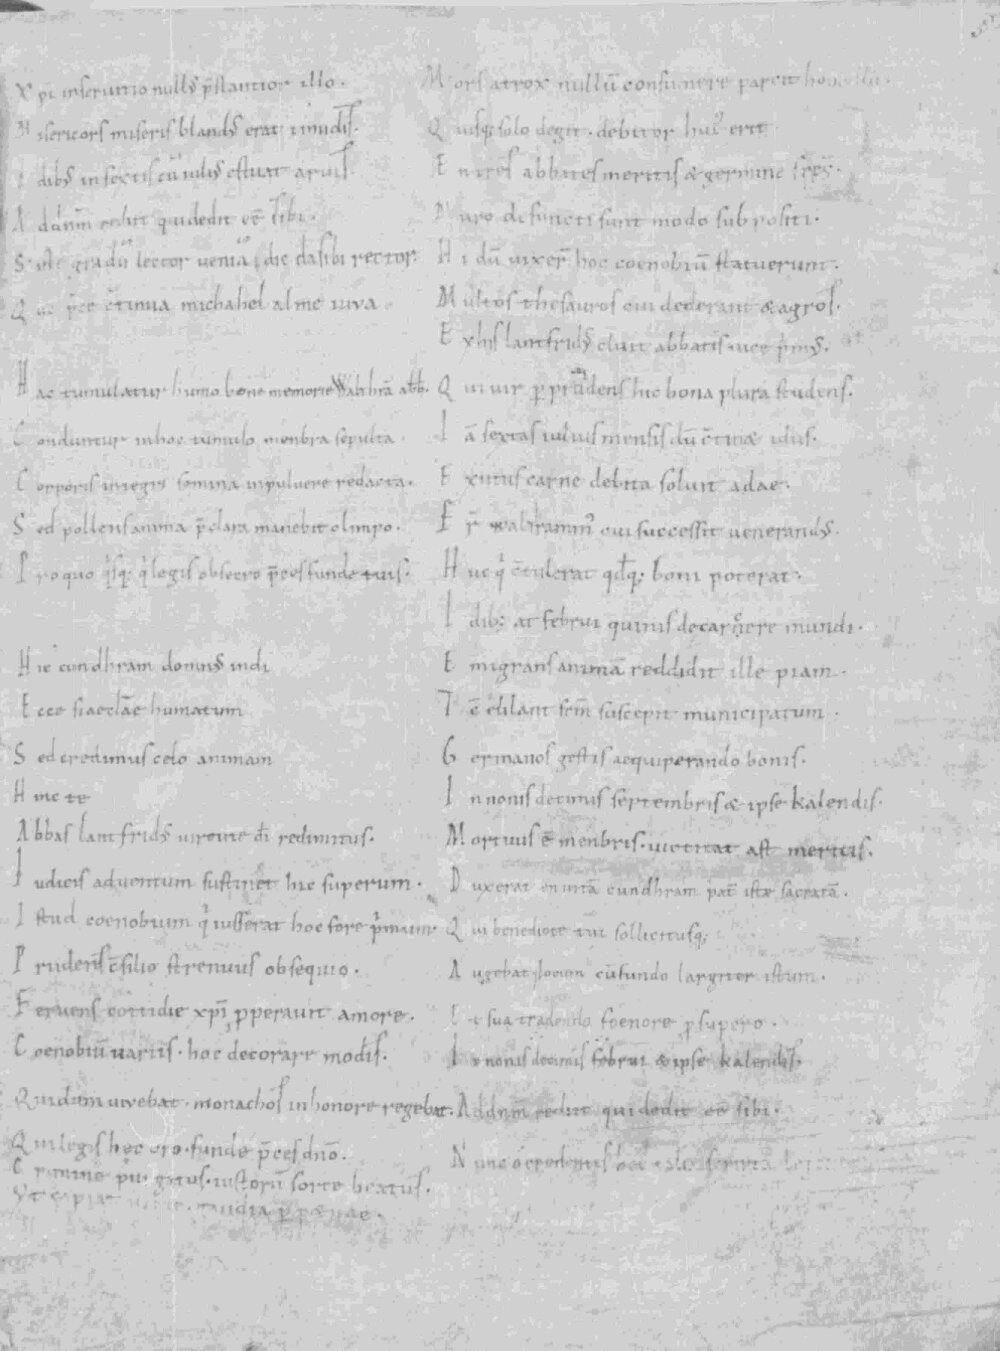 Xpi inservitio nullꝰ p̄stantior illo.
Misericors miseris blandꝰ erat timidis.
Idibꝰ in sextis cū iulius estuat arvis.
Ad dn̄m rediit qui dedit eē sibi.
Siste gradū lector veniā dic da sibi rector.
Qui p̄ce c̄tinua michahel alme iuva
Hac tumulatur humo bone memorie Walthrā abb.
Conduntur in hoc tumulo menbra sepulta.
Corporis integri femina in pulvere redacta.
Sed pollens anima p̄clara manebit olimpo.
Pro quo q̊sq; q̊ legis obsecro p̄ces funde tuis.
Hic cundhram domnꝰ
Ecce humatum
Sed credimus celo animam
Hinc te
Abbas lantfridꝰ virtute dī redimitus.
Iudicis adventum sustinet hic superum.
Istud coenobium q̊ iusserat hoc fore p̊mum
Prudens c̄silio strenuus obsequio.
Fervens cottidie xpī ꝓperavit amore.
Coenobiū variis. hoc decorare modis.
Qui dum vivebat. monachos in honore regebat.
Qui legis hec oro. funde p̄ces dn̄o.
Crimine gatus. iustorū sorte beatus.
Ut capiat gaudia ꝑpetuae.
Mors atrox nullū consumere parcit
Quisq; solo degit. debitor huiꝰ erit
En tres abbates meritis & germine
defuncti sunt modo sub positi.
Hi dū vixer̄ hoc coenobiū statuerunt.
Multos thesauros cui dederant & agros.
Ex his lantfridꝰ cluit abbatis vice p̊mꝰ.
Qui vir ꝑprudens hic bona plura studens.
Iā sextas iulius mensis dū c̄tinæ idus.
Exutus carne debita soluit adae.
Fr̄ waltrammꝰ cui successit venerandꝰ.
Huc q̊ c̄tulerat qdq; boni poterat.
Idib; at febrvi quinis de carcere mundi.
Emigrans animā reddidit ille piam.
Tc̄ elilant scm̄ suscepit municipatum.
Germanos gestis aequiperando bonis.
In nonis decimis septembris & ipse kalendis.
Mortuus ē menbris. victitat ast meritis.
Duxerat en vitā cundhram pat̄ iste sacratā.
Qui benedicte tui sollicitusq;
Augebat locum cū fundo largiter istum.
Et sua tradendo foenore ꝓ supero.
In nonis decimis febrvi & ipse kalendis.
Ad dn̄m rediit qui dedit eē sibi.
Nunc